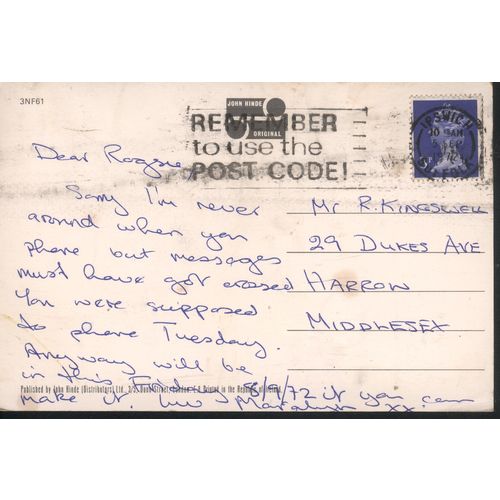 3NF61
JOHN HINDE
ORIGINAL
REMEMBER
to use the
POST CODE!
IPSWICH
10 AM
SEP
Dear
Sorry I'm never
around when you
phone but messages
must have got crossed
You were supposed
to phone Tuesday.
Anyway will be
in this Friday 8/9/72 if you can
make it. luv Maralyn xx.
Mr R. KINGSWELL
29 DUKES AVE
HARROW
MIDDLESEX
Published by John Hinde (Distributors) Ltd., Street, London, Printed in the Republic of Ireland